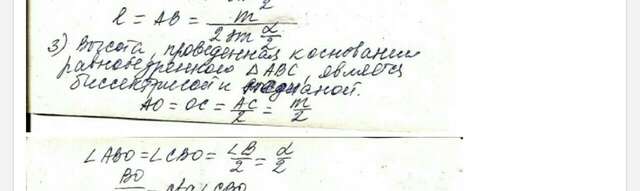 2
l = AB = m / 2 sin α/2
3) Высота, проведенная к основании
равнобедренного △ABC, является
биссектрисой и медианой.
AO = OC = AC/2 = m/2
∠ABO = ∠CBO = ∠B/2 = α/2
BO = ctg ∠CBO